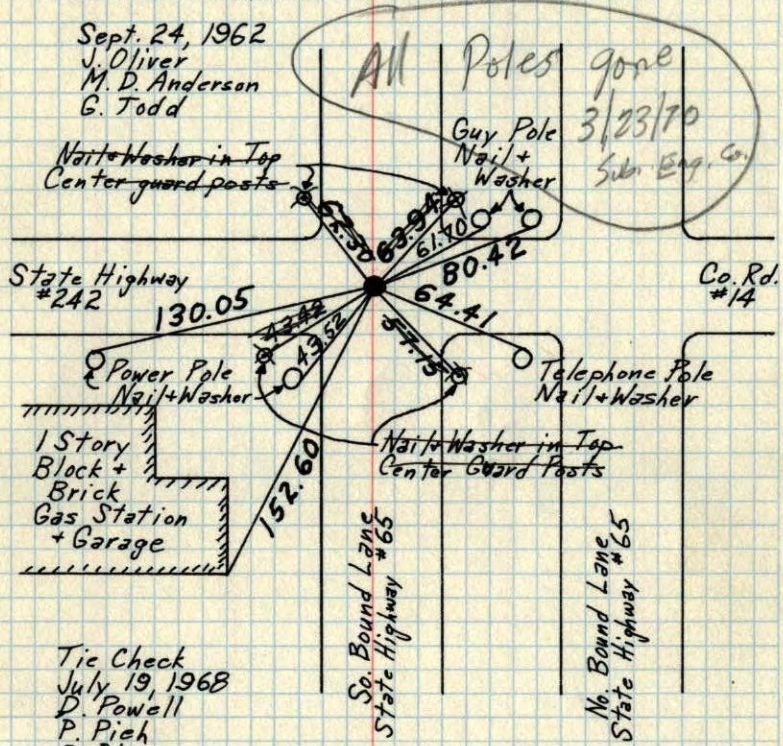 Sept. 24, 1962
J. Oliver
M. D. Anderson
G. Todd
All Poles gone
3/23/70
Sub. Eng. Co.
Nail & Washer in Top
Center guard posts
Guy Pole
Nail +
Washer
63.94
61.70
80.42
State Highway
#242
Co. Rd.
#14
130.05
64.41
43.42
43.52
57.15
Power Pole
Nail + Washer
Telephone Pole
Nail + Washer
Nail & Washer in Top
Center Guard Posts
1 Story
Block +
Brick
Gas Station
+ Garage
152.60
So. Bound Lane
State Highway #65
No. Bound Lane
State Highway #65
Tie Check
July 19, 1968
D. Powell
P. Pieh